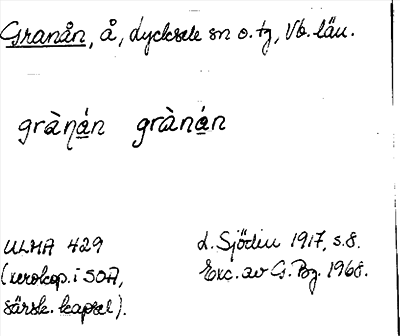 Granån, å, Lycksele sn o. tg, Vb. län.
gràná̲n gràná̲n
ULMA 429
(xerokop. i SOA,
särsk. kapsel).
L. Sjödin 1917, s. 8.
Exc. av G. Bg. 1968.